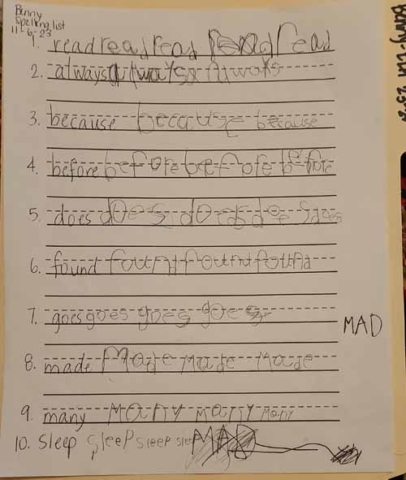 Benny
Spelling list
11-6-23
1. read read read read read
2. always always always
3. because because because
4. before before before before
5. does does does does does
6. found found found found
7. goes goes goes goes
MAD
8. made Made Made Made
9. many Many many Many
10. Sleep sleep sleep MAD